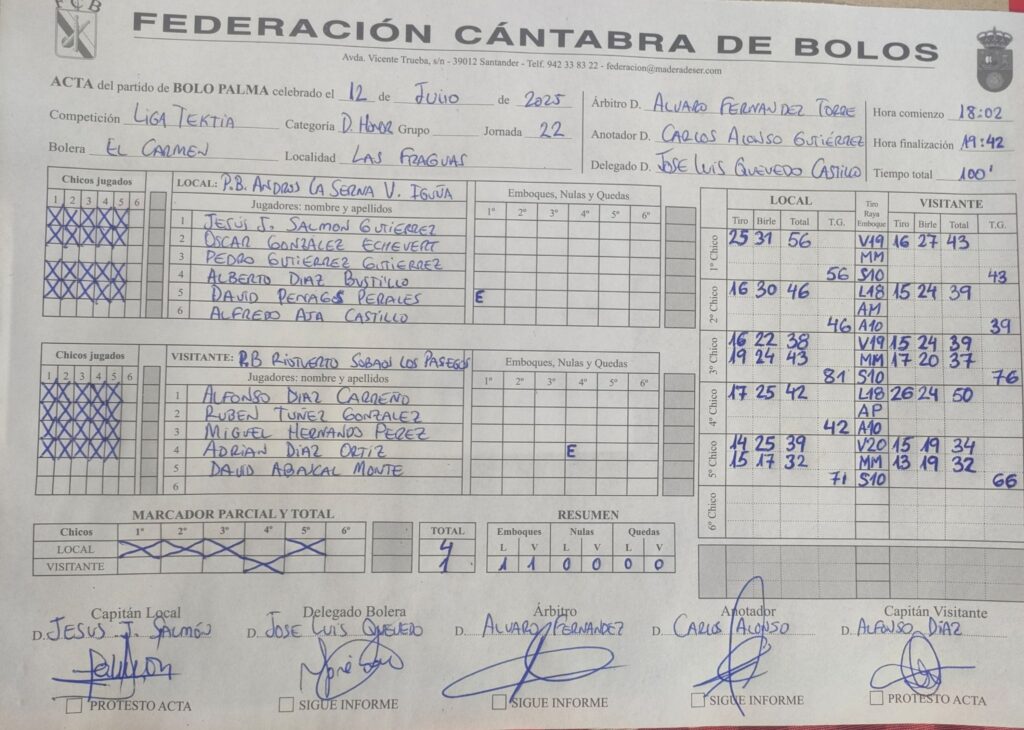 FCB
FEDERACIÓN CÁNTABRA DE BOLOS
Avda. Vicente Trueba, s/n - 39012 Santander - Telf. 942 33 83 22 - federacion@maderadeser.com
ACTA del partido de BOLO PALMA celebrado el 12 de JULIO de 2025
Competición LIGA TEKTIA Categoría D. HONOR Grupo Jornada 22
Bolera EL CARMEN Localidad LAS FRAGUAS
Árbitro D. ALVARO FERNANDEZ TORRE
Anotador D. CARLOS ALONSO GUTIÉRREZ
Delegado D. JOSE LUIS QUEVEDO CASTILLO
Hora comienzo 18:02
Hora finalización 19:42
Tiempo total 100'
Chicos jugados LOCAL: P.B. ANDROS LA SERNA V. IGUÑA Emboques, Nulas y Quedas
1 2 3 4 5 6 Jugadores: nombre y apellidos 1º 2º 3º 4º 5º 6º
1 JESÚS J. SALMON GUTIERREZ
2 OSCAR GONZALEZ ECHEVERT
3 PEDRO GUTIERREZ GUTIERREZ
4 ALBERTO DIAZ BUSTILLO
5 DAVID PENAGOS PERALES E
6 ALFREDO AJA CASTILLO
Chicos jugados VISITANTE: P.B RIOTUERTO SOBAO LOS PASEGOS Emboques, Nulas y Quedas
1 2 3 4 5 6 Jugadores: nombre y apellidos 1º 2º 3º 4º 5º 6º
1 ALFONSO DIAZ CARREÑO
2 RUBEN TUÑEZ GONZALEZ
3 MIGUEL HERNANDO PEREZ
4 ADRIAN DIAZ ORTIZ E
5 DAVID ABASCAL MONTE
6
LOCAL Tiro Raya Emboque VISITANTE
Tiro Birle Total T.G. Tiro Birle Total T.G.
1º Chico 25 31 56 V19 16 27 43
MM
56 S10 43
2º Chico 16 30 46 L18 15 24 39
AM
46 A10 39
3º Chico 16 22 38 V19 15 24 39
19 24 43 MM 17 20 37
81 S10 76
4º Chico 17 25 42 L18 26 24 50
AP
42 A10
5º Chico 14 25 39 V20 15 19 34
15 17 32 MM 13 19 32
71 S10 66
6º Chico
MARCADOR PARCIAL Y TOTAL
Chicos 1º 2º 3º 4º 5º 6º TOTAL
LOCAL 4
VISITANTE 1
RESUMEN
Emboques Nulas Quedas
L V L V L V
1 1 0 0 0 0
Capitán Local Delegado Bolera Árbitro Anotador Capitán Visitante
D. JESUS J. SALMÓN D. JOSE LUIS QUEVEDO D. ALVARO FERNANDEZ D. CARLOS ALONSO D. ALFONSO DÍAZ
PROTESTO ACTA SIGUE INFORME SIGUE INFORME SIGUE INFORME PROTESTO ACTA